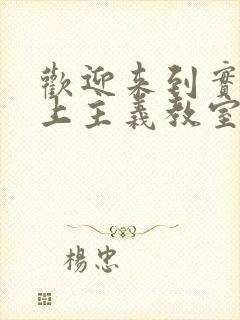 歡迎來到實
上主義教室
楊忠